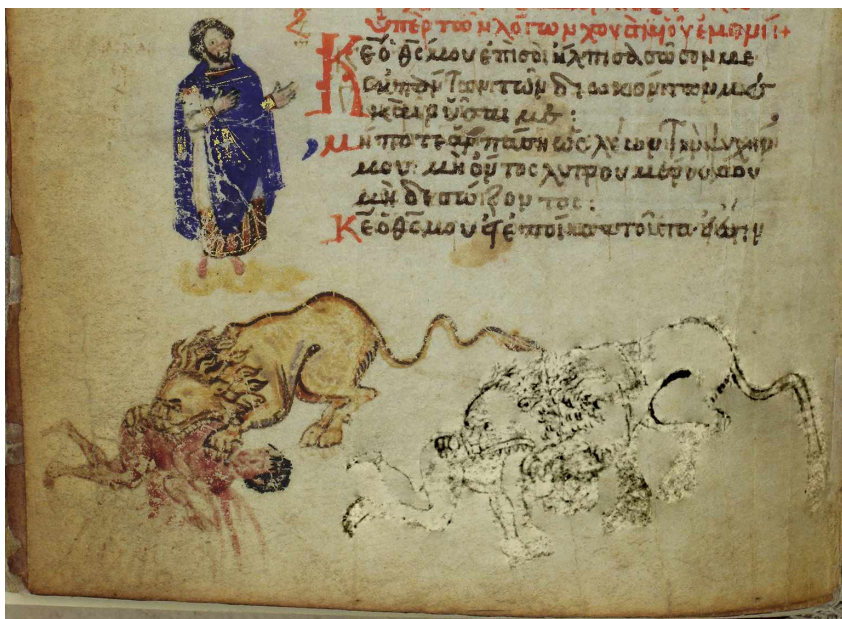 ὑπὲρ τῶν λόγων
Κε ὁ θς μου ἐπὶ σοὶ ἤλπισα σῶσον με
ἐκ πάντων τῶν διωκόντων με
καὶ ῥῦσαι με :
μήποτε ἁρπάσῃ ὡς λέων τὴν ψυχήν
μου· μὴ ὄντος λυτρουμένου
μὴ δὲ σώζοντος :
Κε ὁ θς μου εἰ ἐποίησα τοῦτο